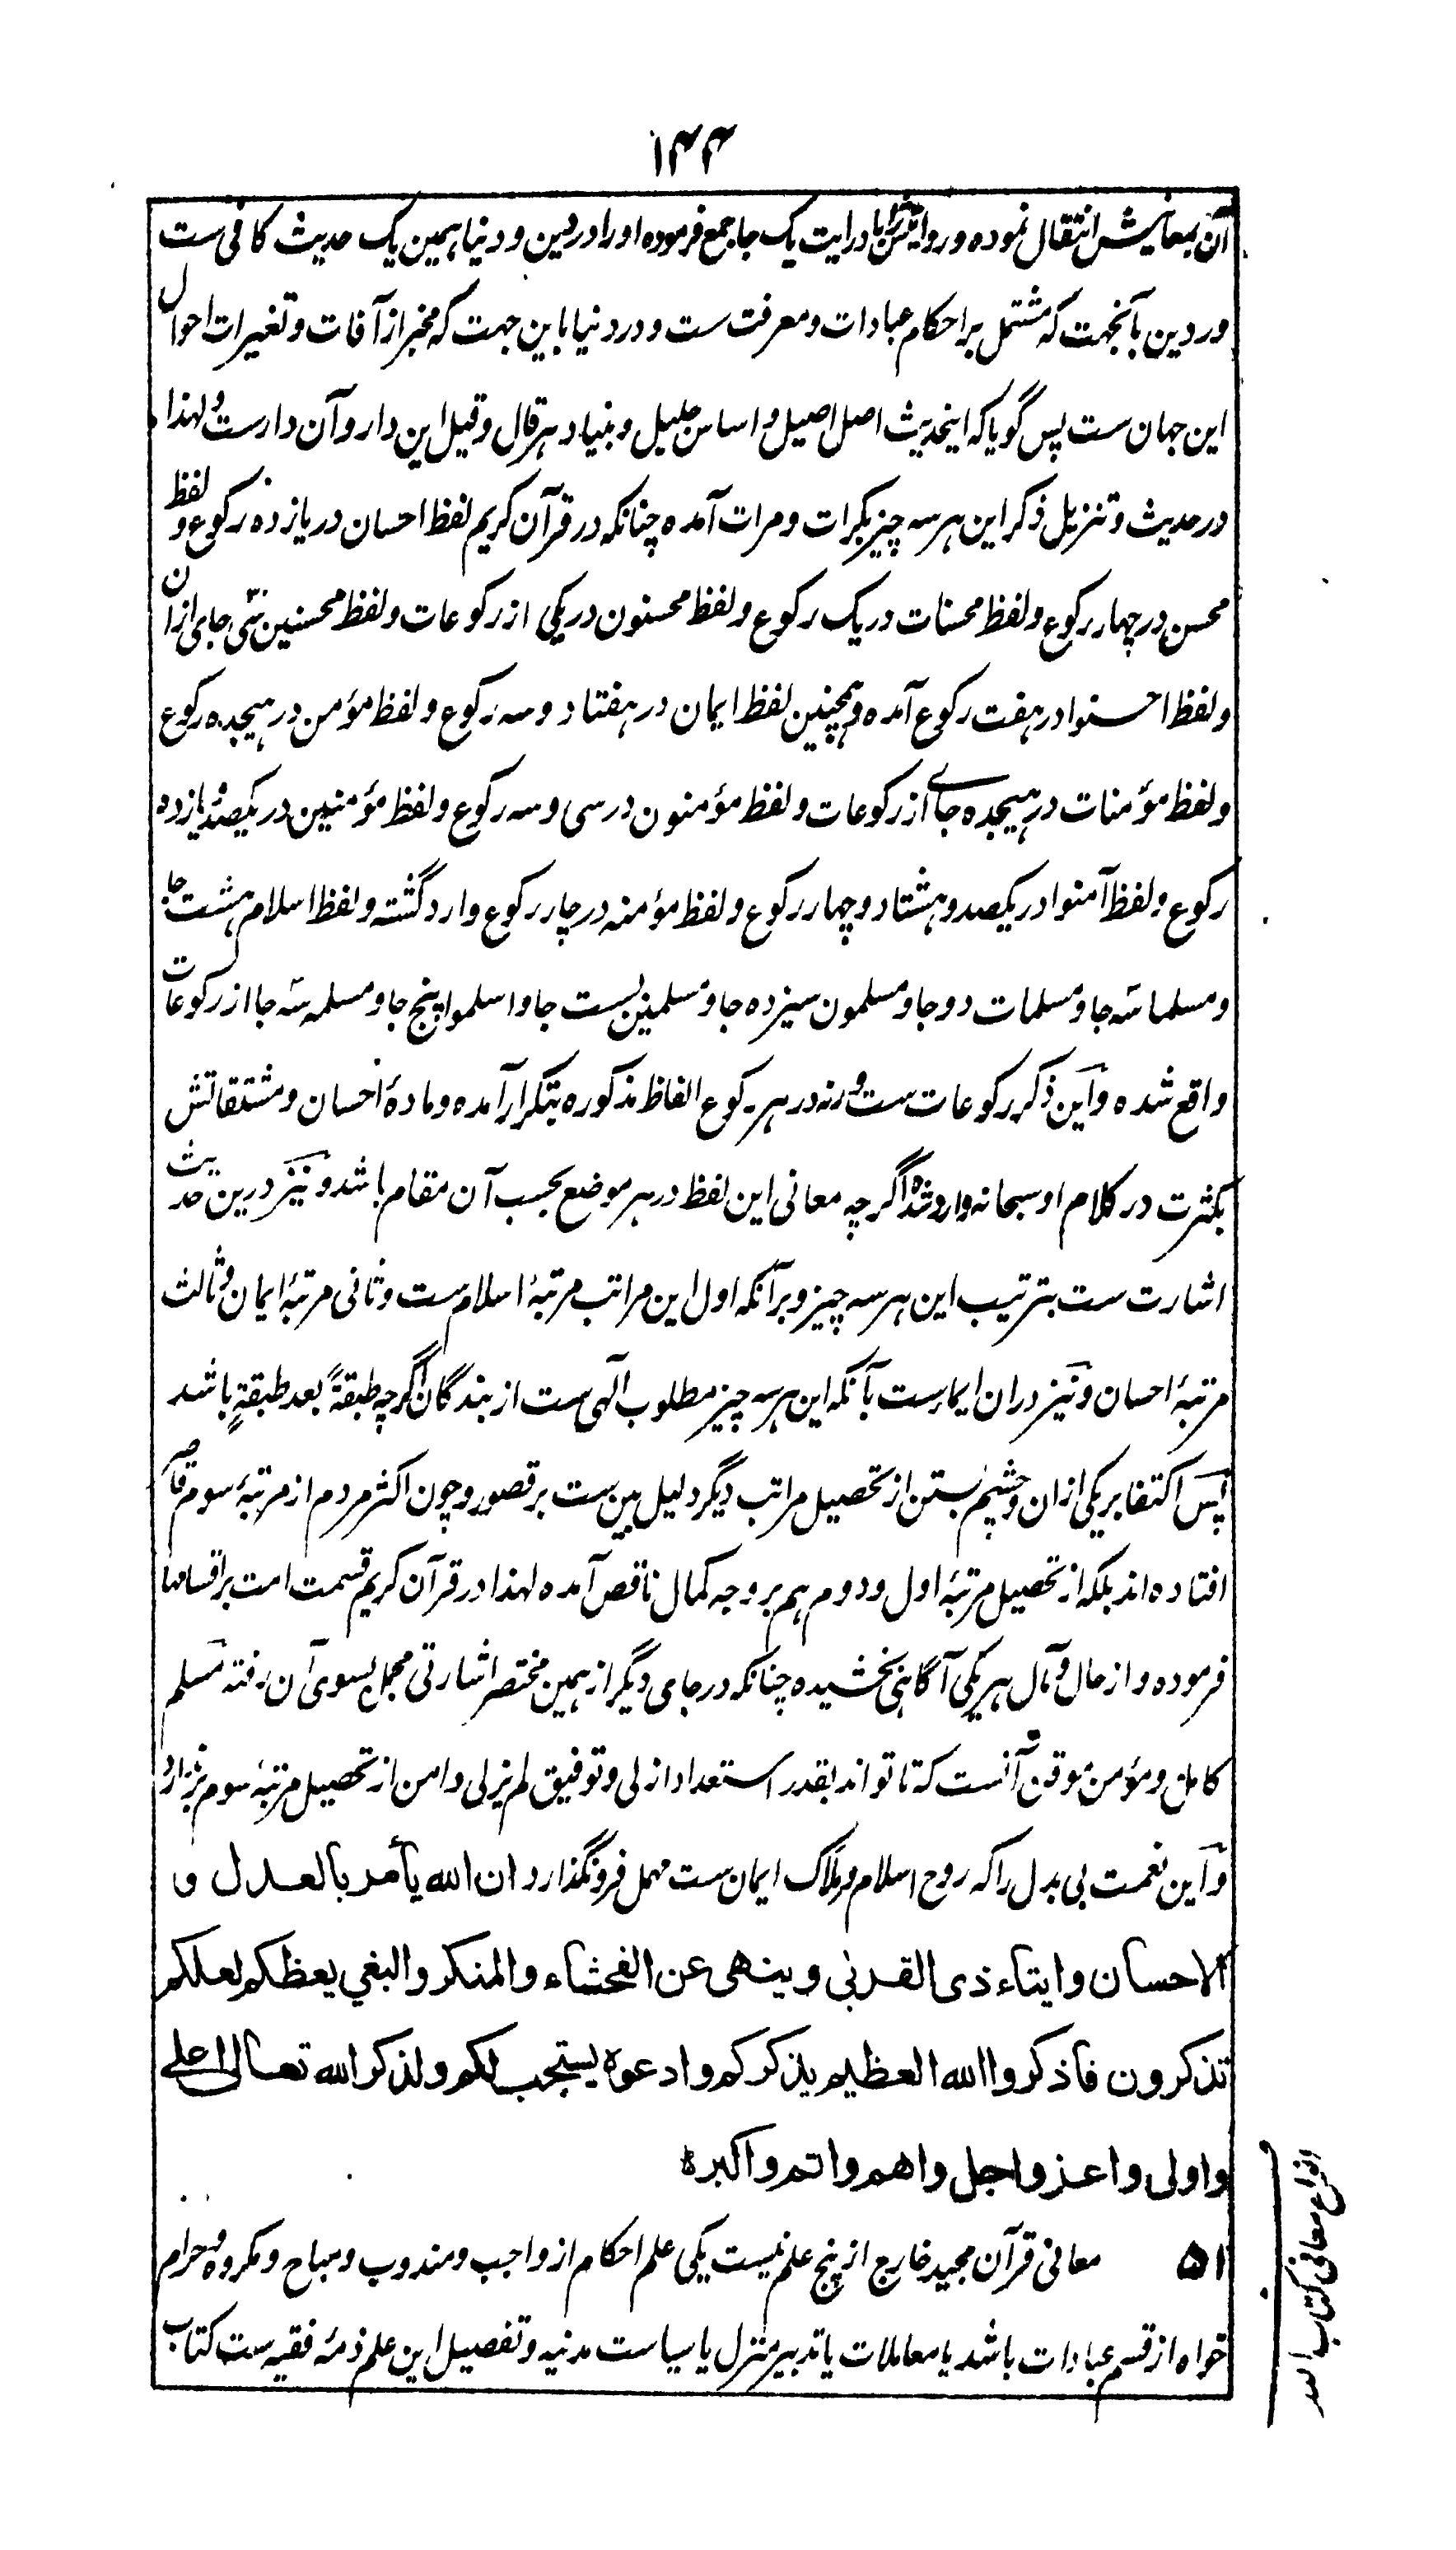 ۱۴۴
آن بمعانیش انتقال نموده و روایتش را با درایت یک جا جمع فرموده او را در دین و دنیا همین یک حدیث کافی ست
در دین بآنجهت که مشتمل بر احکام عبادات و معرفت ست و در دنیا باین جهت که مخبر از آفات و تغیرات احوال
این جهان ست پس گویا که اینحدیث اصل اصیل و اساس جلیل و بنیاد هر قال و قیل این دار و آن دارست و لهذا
در حدیث و تنزیل ذکر این هر سه چیز بکرات و مرات آمده چنانکه در قرآن کریم لفظ احسان در یازده رکوع و لفظ
محسن در چهار رکوع و لفظ محسنات در یک رکوع و لفظ محسنون در یکی از رکوعات و لفظ محسنین سی جای ازان
و لفظ احسنوا در هفت رکوع آمده و همچنین لفظ ایمان در هفتاد و سه رکوع و لفظ مؤمن در هیجده رکوع
و لفظ مؤمنات در هیجده جای از رکوعات و لفظ مؤمنون در سی و سه رکوع و لفظ مؤمنین در یکصد و یازده
رکوع و لفظ آمنوا در یکصد و هشتاد و چهار رکوع و لفظ مؤمنه در چار رکوع وارد گشته و لفظ اسلام هشت جا
و مسلما سه جا و مسلمات دو جا و مسلمون سیزده جا و مسلمین بست جا و اسلموا پنج جا و مسلمه سه جا از رکوعات
واقع شده و این ذکر رکوعات ست ورنه در هر رکوع الفاظ مذکوره بتکرار آمده و مادۀ احسان و مشتقاتش
بکثرت در کلام او سبحانه وارد شده اگرچه معانی این لفظ در هر موضع بحسب آن مقام باشد و نیز درین حدیث
اشارت ست بترتیب این هر سه چیز و برآنکه اول این مراتب مرتبۀ اسلام ست و ثانی مرتبۀ ایمان و ثالث
مرتبۀ احسان و نیز دران ایمارست بآنکه این هر سه چیز مطلوب الٰهی ست از بندگان اگرچه طبقةً بعد طبقةٍ باشد
پس اکتفا بر یکی ازان و چشم بستن از تحصیل مراتب دیگر دلیل بین ست بر قصور و چون اکثر مردم از مرتبۀ سوم قاصر
افتاده اند بلکه از تحصیل مرتبۀ اول و دوم هم بر وجه کمال ناقص آمده لهذا در قرآن کریم قسمت امت بر اقسامها
فرموده و از حال و مآل هر یکی آگاهی بخشیده چنانکه در جای دیگر از همین مختصر اشارتی مجمل بسوی آن رفته مسلم
کامل و مؤمن موقن آنست که تا تواند بقدر استعداد ازلی و توفیق لم یزلی دامن از تحصیل مرتبۀ سوم برندارد
و این نعمت بی بدل را که روح اسلام و ملاک ایمان ست مهمل فرو نگذارد ان الله یأمر بالعدل و
الاحسان وایتاء ذی القربی وینهی عن الفحشاء والمنکر والبغي یعظکم لعلکم
تذکرون فاذکروا الله العظیم یذکرکم وادعوه یستجب لکم ولذکر الله تعالی اعلی
واولی واعز واجل واهم واتم واکبره
۵۱ معانی قرآن مجید خارج از پنج علم نیست یکی علم احکام از واجب و مندوب و مباح و مکروه و حرام
خواه از قسم عبادات باشد یا معاملات یا تدبیر منزل یا سیاست مدنیه و تفصیل این علم ذمۀ فقیه ست کتاب
انواع معانی کتاب الله